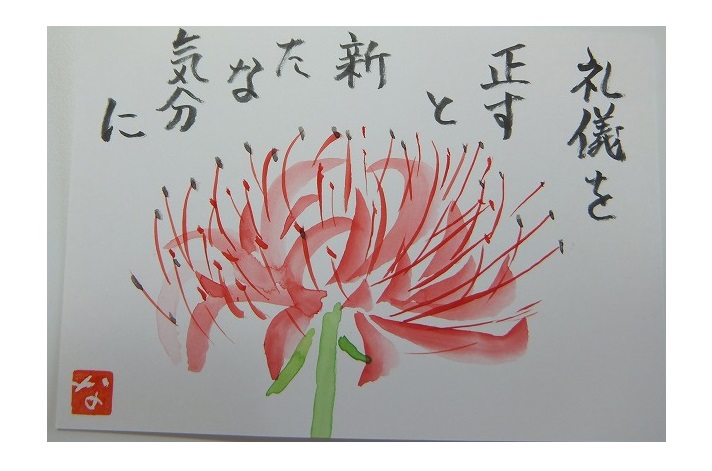 礼儀を
正す
と
新
たな
気分
に